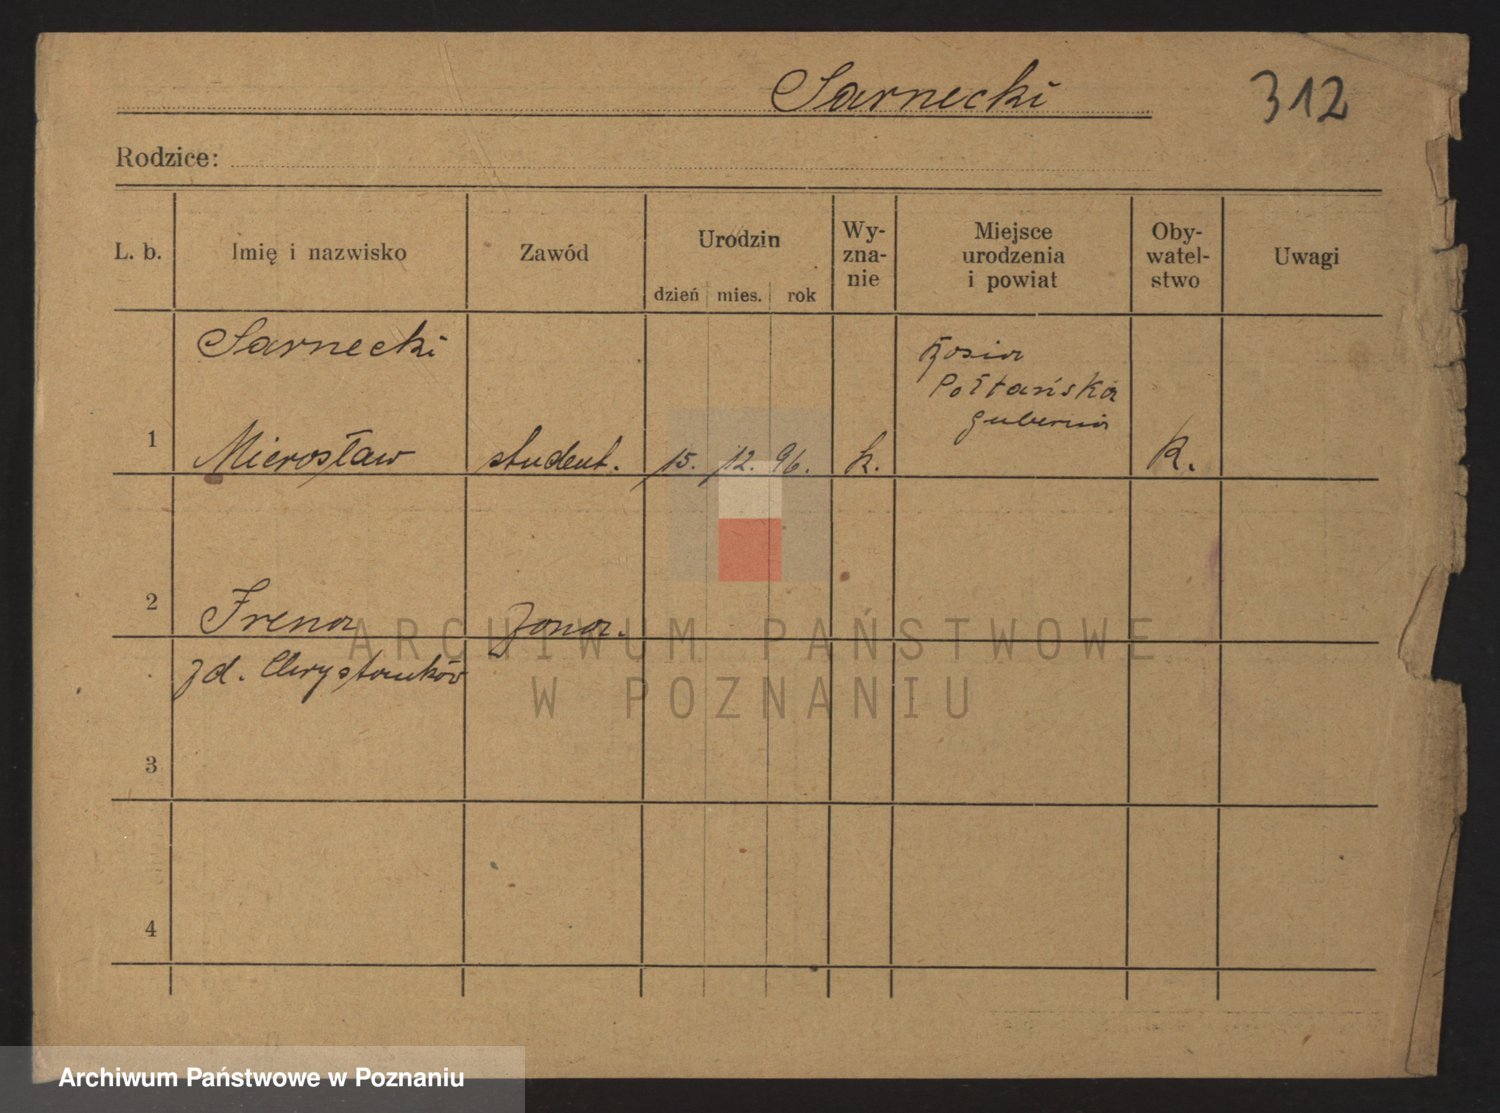 Sarnecki
312
Rodzice:
L. b.
Imię i nazwisko
Zawód
Urodzin
dzień mies. rok
Wy-
zna-
nie
Miejsce
urodzenia
i powiat
Oby-
watel-
stwo
Uwagi
Sarnecki
1
Mierosław
student.
15. 12. 96.
k.
Połtańska
gubernia
R.
2
Irena
żona.
zd.
3
4
ARCHIWUM PAŃSTWOWE
W POZNANIU
Archiwum Państwowe w Poznaniu